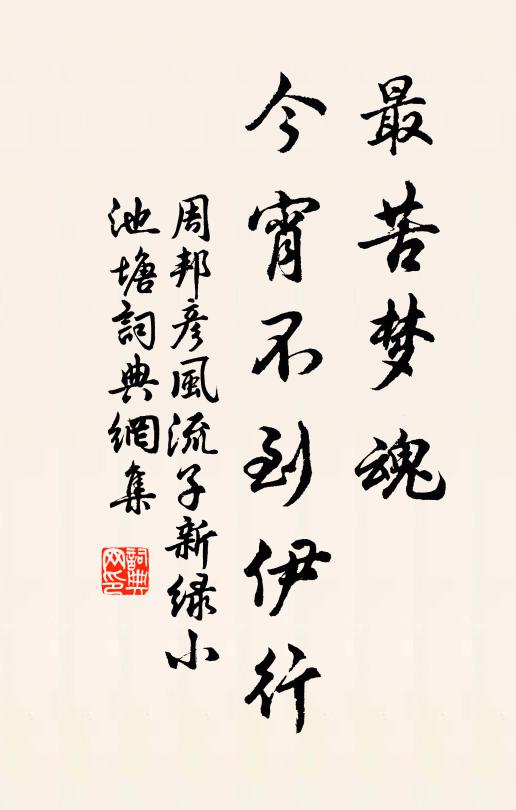 最苦梦魂
今宵不到伊行
周邦彦風流子新绿小
池塘詞典網集
詞典
网印